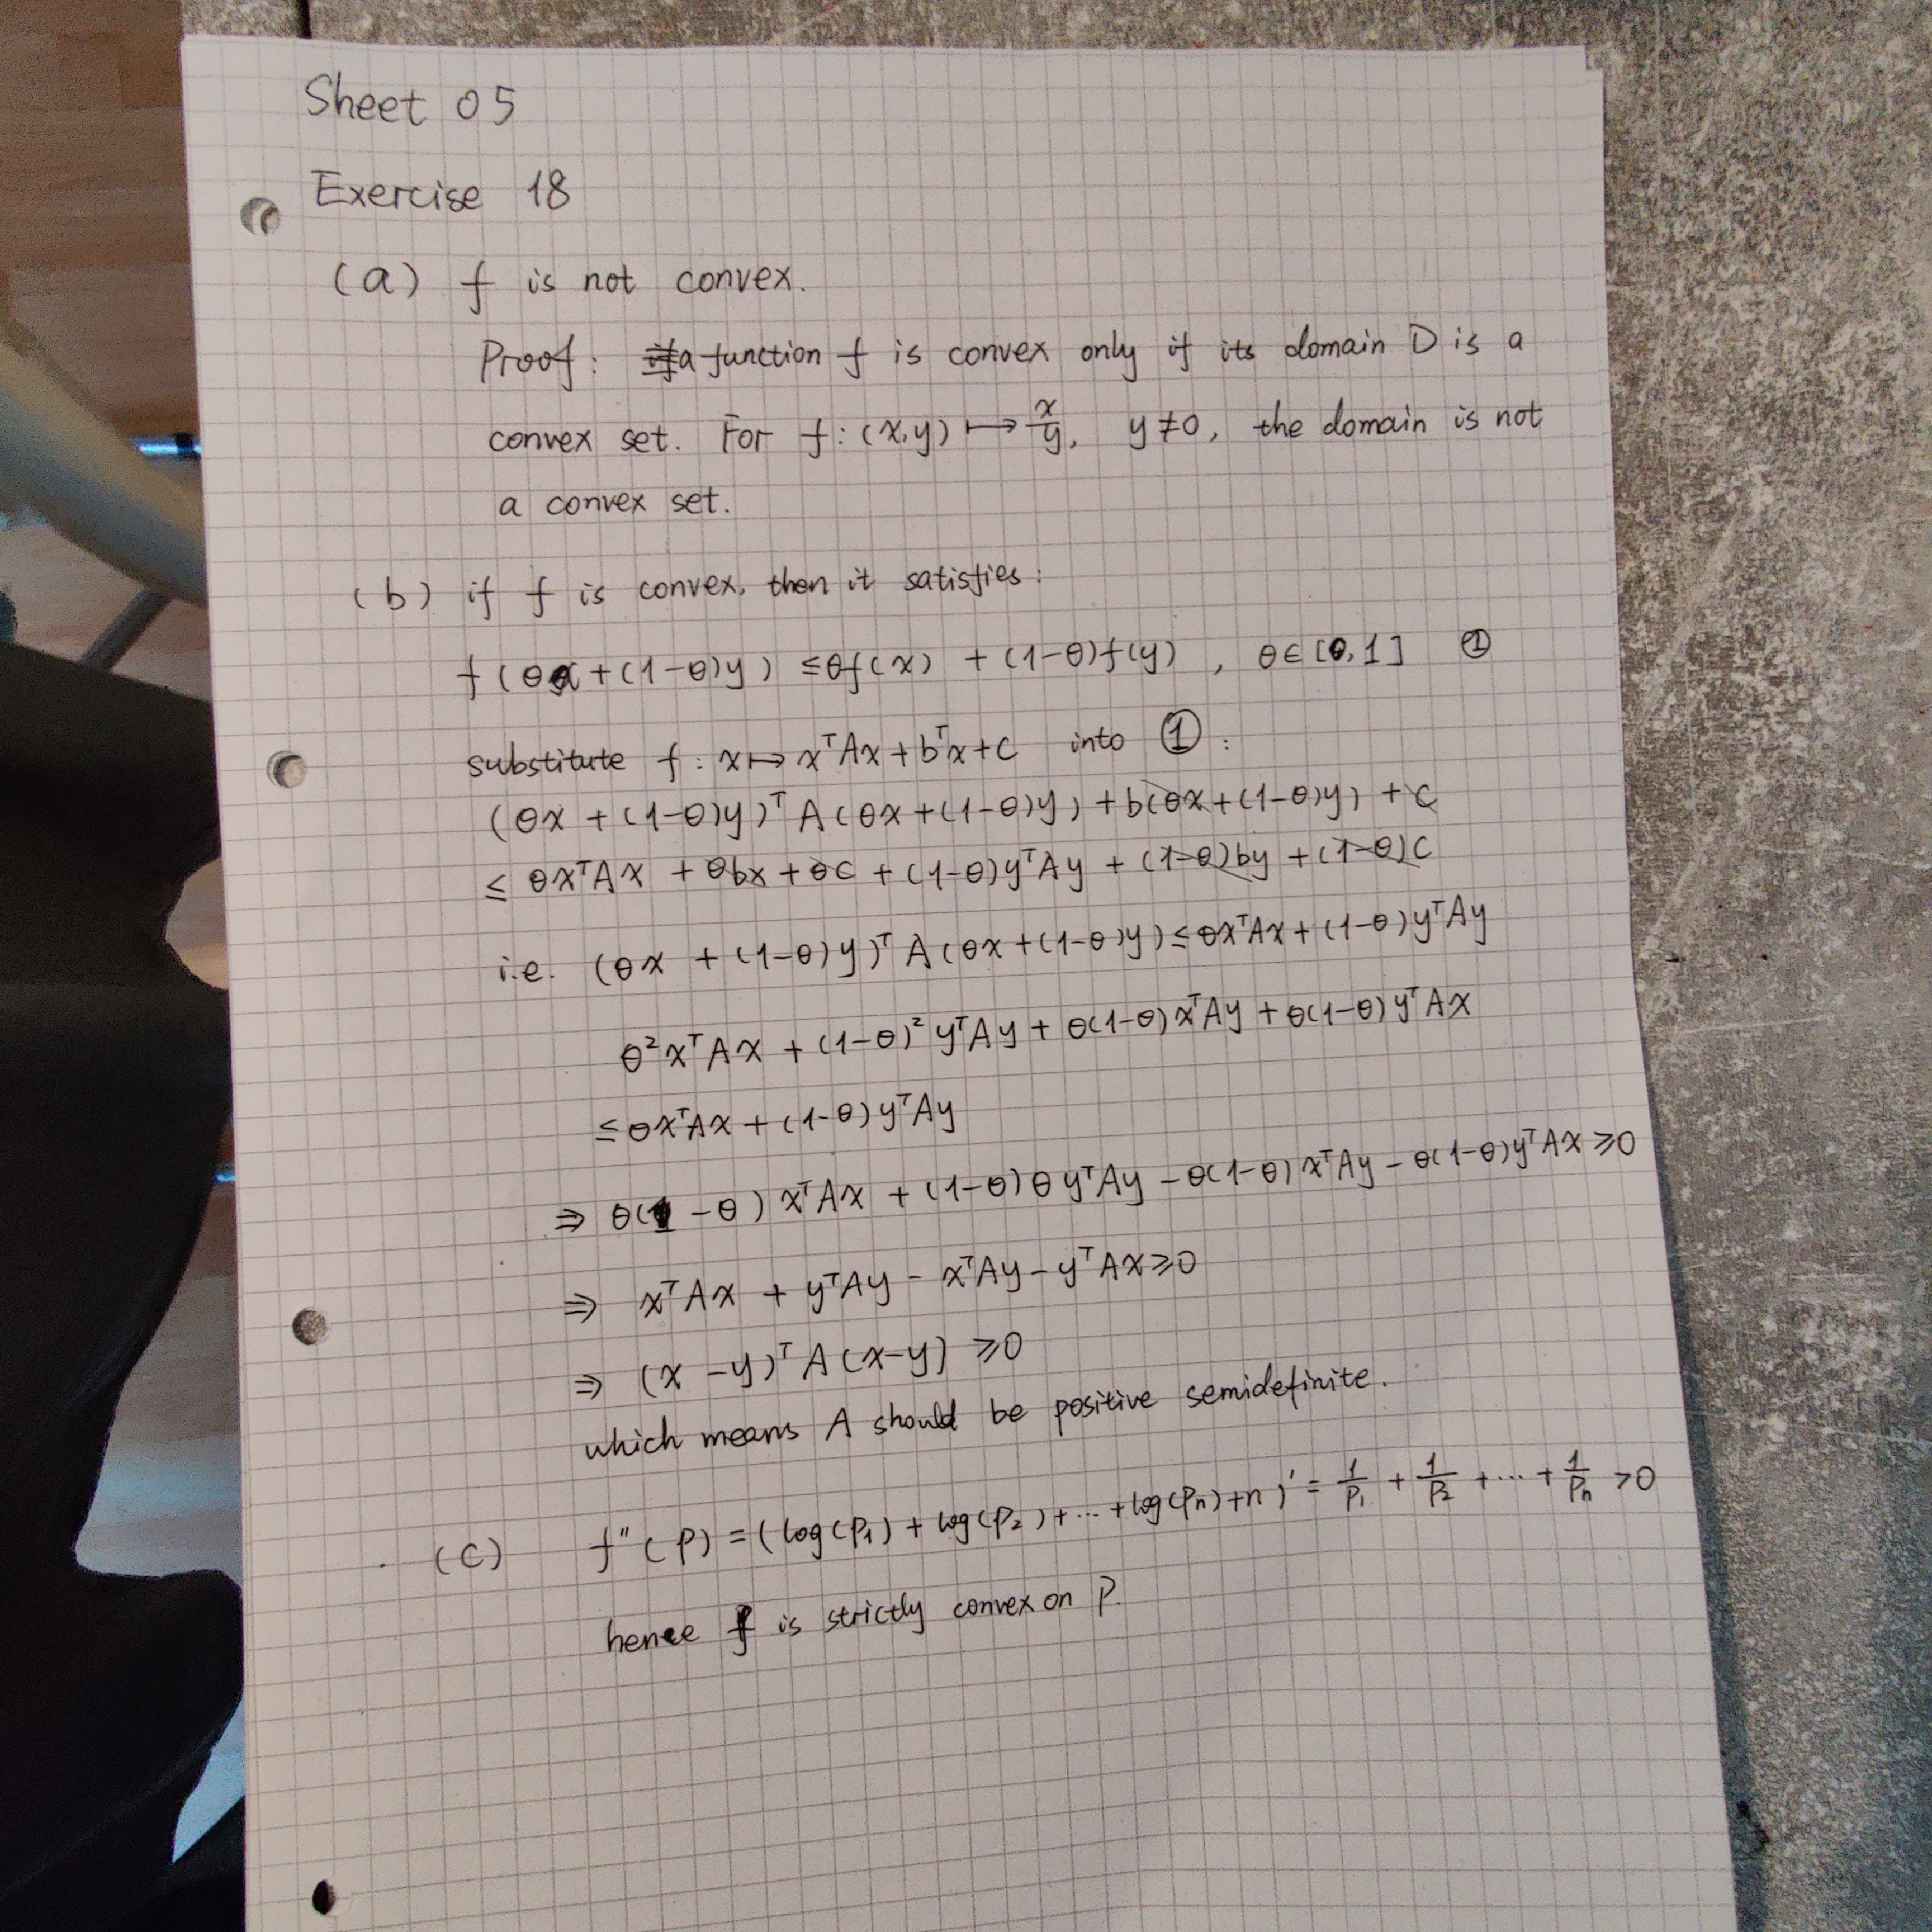 Sheet 05
Exercise 18
(a) f is not convex.
Proof: a function f is convex only if its domain D is a
convex set. For f: (x,y) ↦ x/y, y≠0, the domain is not
a convex set.
(b) if f is convex, then it satisfies:
f(θx+(1-θ)y) ≤θf(x) + (1-θ)f(y), θ∈[0,1] ①
substitute f: x↦xᵀAx+bᵀx+c into ①:
(θx+(1-θ)y)ᵀA(θx+(1-θ)y)+b(θx+(1-θ)y)+c
≤ θxᵀAx + θbx+θc+(1-θ)yᵀAy+(1-θ)by+(1-θ)c
i.e. (θx+(1-θ)y)ᵀA(θx+(1-θ)y)≤θxᵀAx+(1-θ)yᵀAy
θ²xᵀAx+(1-θ)²yᵀAy+θ(1-θ)xᵀAy+θ(1-θ)yᵀAx
≤θxᵀAx+(1-θ)yᵀAy
⇒ θ(1-θ)xᵀAx+(1-θ)θyᵀAy-θ(1-θ)xᵀAy-θ(1-θ)yᵀAx≥0
⇒ xᵀAx+yᵀAy-xᵀAy-yᵀAx≥0
⇒ (x-y)ᵀA(x-y)≥0
which means A should be positive semidefinite.
(c) f''(p)=(log(p₁)+log(p₂)+...+log(pₙ)+n)'=1/p₁+1/p₂+...+1/pₙ>0
hence f is strictly convex on P.